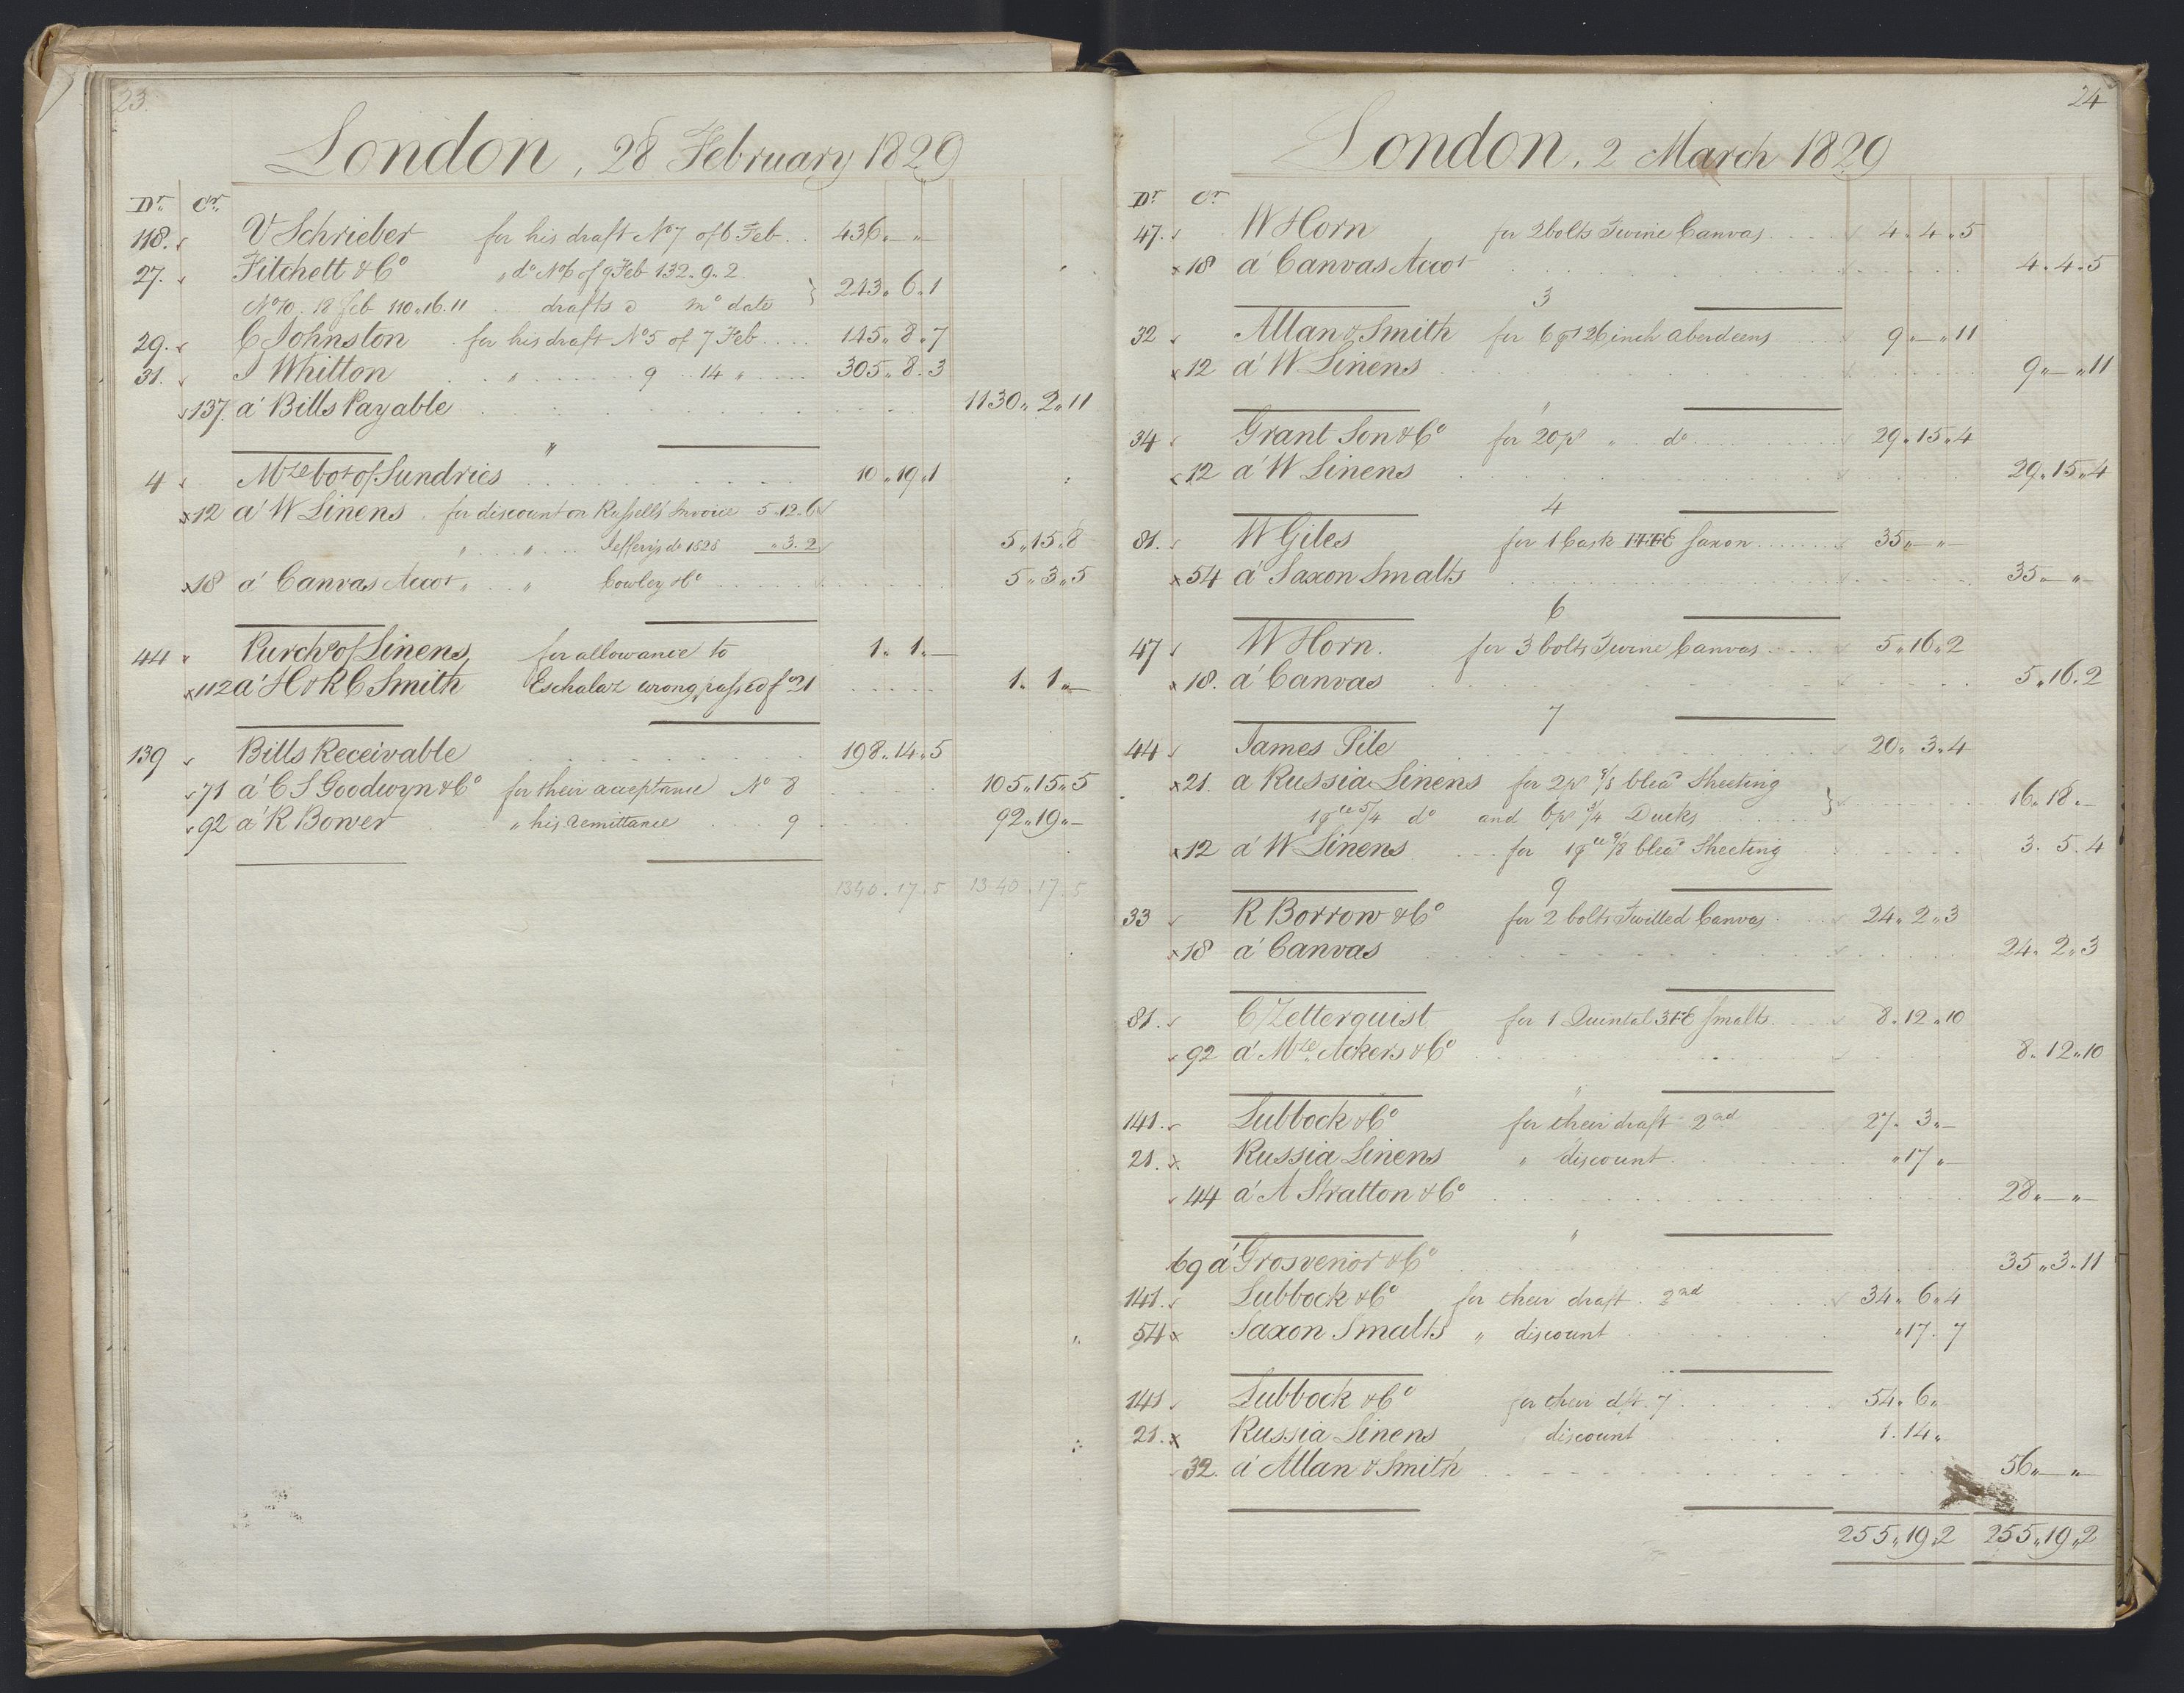 23.
London, 28 February 1829
Dr. Cr.
118. V Schrieber for his draft No 7 of 6 Feb 436 " — " —
27. Fitchett & Co " do No 6 of 9 Feb 132 " 9 " 2
No 10. 18 feb 110 " 16 . 11 drafts mo date } 243 " 6 " 1
29. C Johnston for his draft No 5 of 7 Feb 145 " 8 " 7
31. J Whitton " 9 14 " 305 " 8 " 3
137. a' Bills Payable 1130 " 2 " 11
"
4 Mdze bot of Sundries 10 " 19 " 1
12 a' W Linens for discount on Russell's Invoice 5 " 12 " 6
" " Jeffery's do 1828 " 3 . 2 5 " 15 " 8
18 a' Canvas Accot " " Cowley & Co 5 " 3 " 5
44 Purche of Linens for allowance to 1 " 1 " —
112 a' H & R C Smith Eschalaz wrong passed fo 21 1 " 1 " —
139 Bills Receivable 198 " 14 " 5
71 a' C S Goodwyn & Co for their acceptance No 8 105 " 15 " 5
92 a' R Bower " his remittance 9 92 " 19 " —
1340 . 17 . 5 1340 . 17 . 5
24
London, 2 March 1829
Dr Cr
47. W Horn for 2 bolts Twine Canvas 4 " 4 " 5
18 a' Canvas Accot 4 " 4 " 5
3
32 Allan & Smith for 6 ps 26 inch Aberdeens 9 " — " 11
12 a' W Linens 9 " — " 11
"
34 Grant Son & Co for 20 ps " do 29 " 15 " 4
12 a' W Linens 29 " 15 " 4
4
81. W Giles for 1 Cask FFFE Saxon 35 " — " —
54 a' Saxon Smalts 35 — " —
6
47 W Horn. for 3 bolts Twine Canvas 5 " 16 " 2
18. a' Canvas 5 " 16 . 2
7
44 James Pile 20 " 3 " 4
21. a Russia Linens for 2 ps 9/8 blead Sheeting
1 5/4 do and 6 ps 3/4 Ducks } 16 " 18 " —
12 a' W Linens for 1 9/8 blead Sheeting 3 . 5 . 4
9
33 R Borrow & Co for 2 bolts Twilled Canvas 24 " 2 " 3
18 a' Canvas 24 " 2 " 3
81. C Zetterquist for 1 Quintal 3FE Smalts 8 " 12 " 10
92 a' Mdze Ackers & Co 8 " 12 " 10
"
141. Lubbock & Co for their draft 2nd 27 " 3 " —
21. Russia Linens " discount " 17 " —
44 a' A Stratton & Co 28 " — " —
"
69 a' Grosvenor & Co 35 " 3 " 11
141. Lubbock & Co for their draft 2nd 34 " 6 " 4
54 Saxon Smalts " discount " 17 . 7
141 Lubbock & Co for their dft. 7 54 " 6 "
21. Russia Linens discount 1 . 14 "
32. a' Allan & Smith 56 " — " —
255 " 19 " 2 255 " 19 " 2